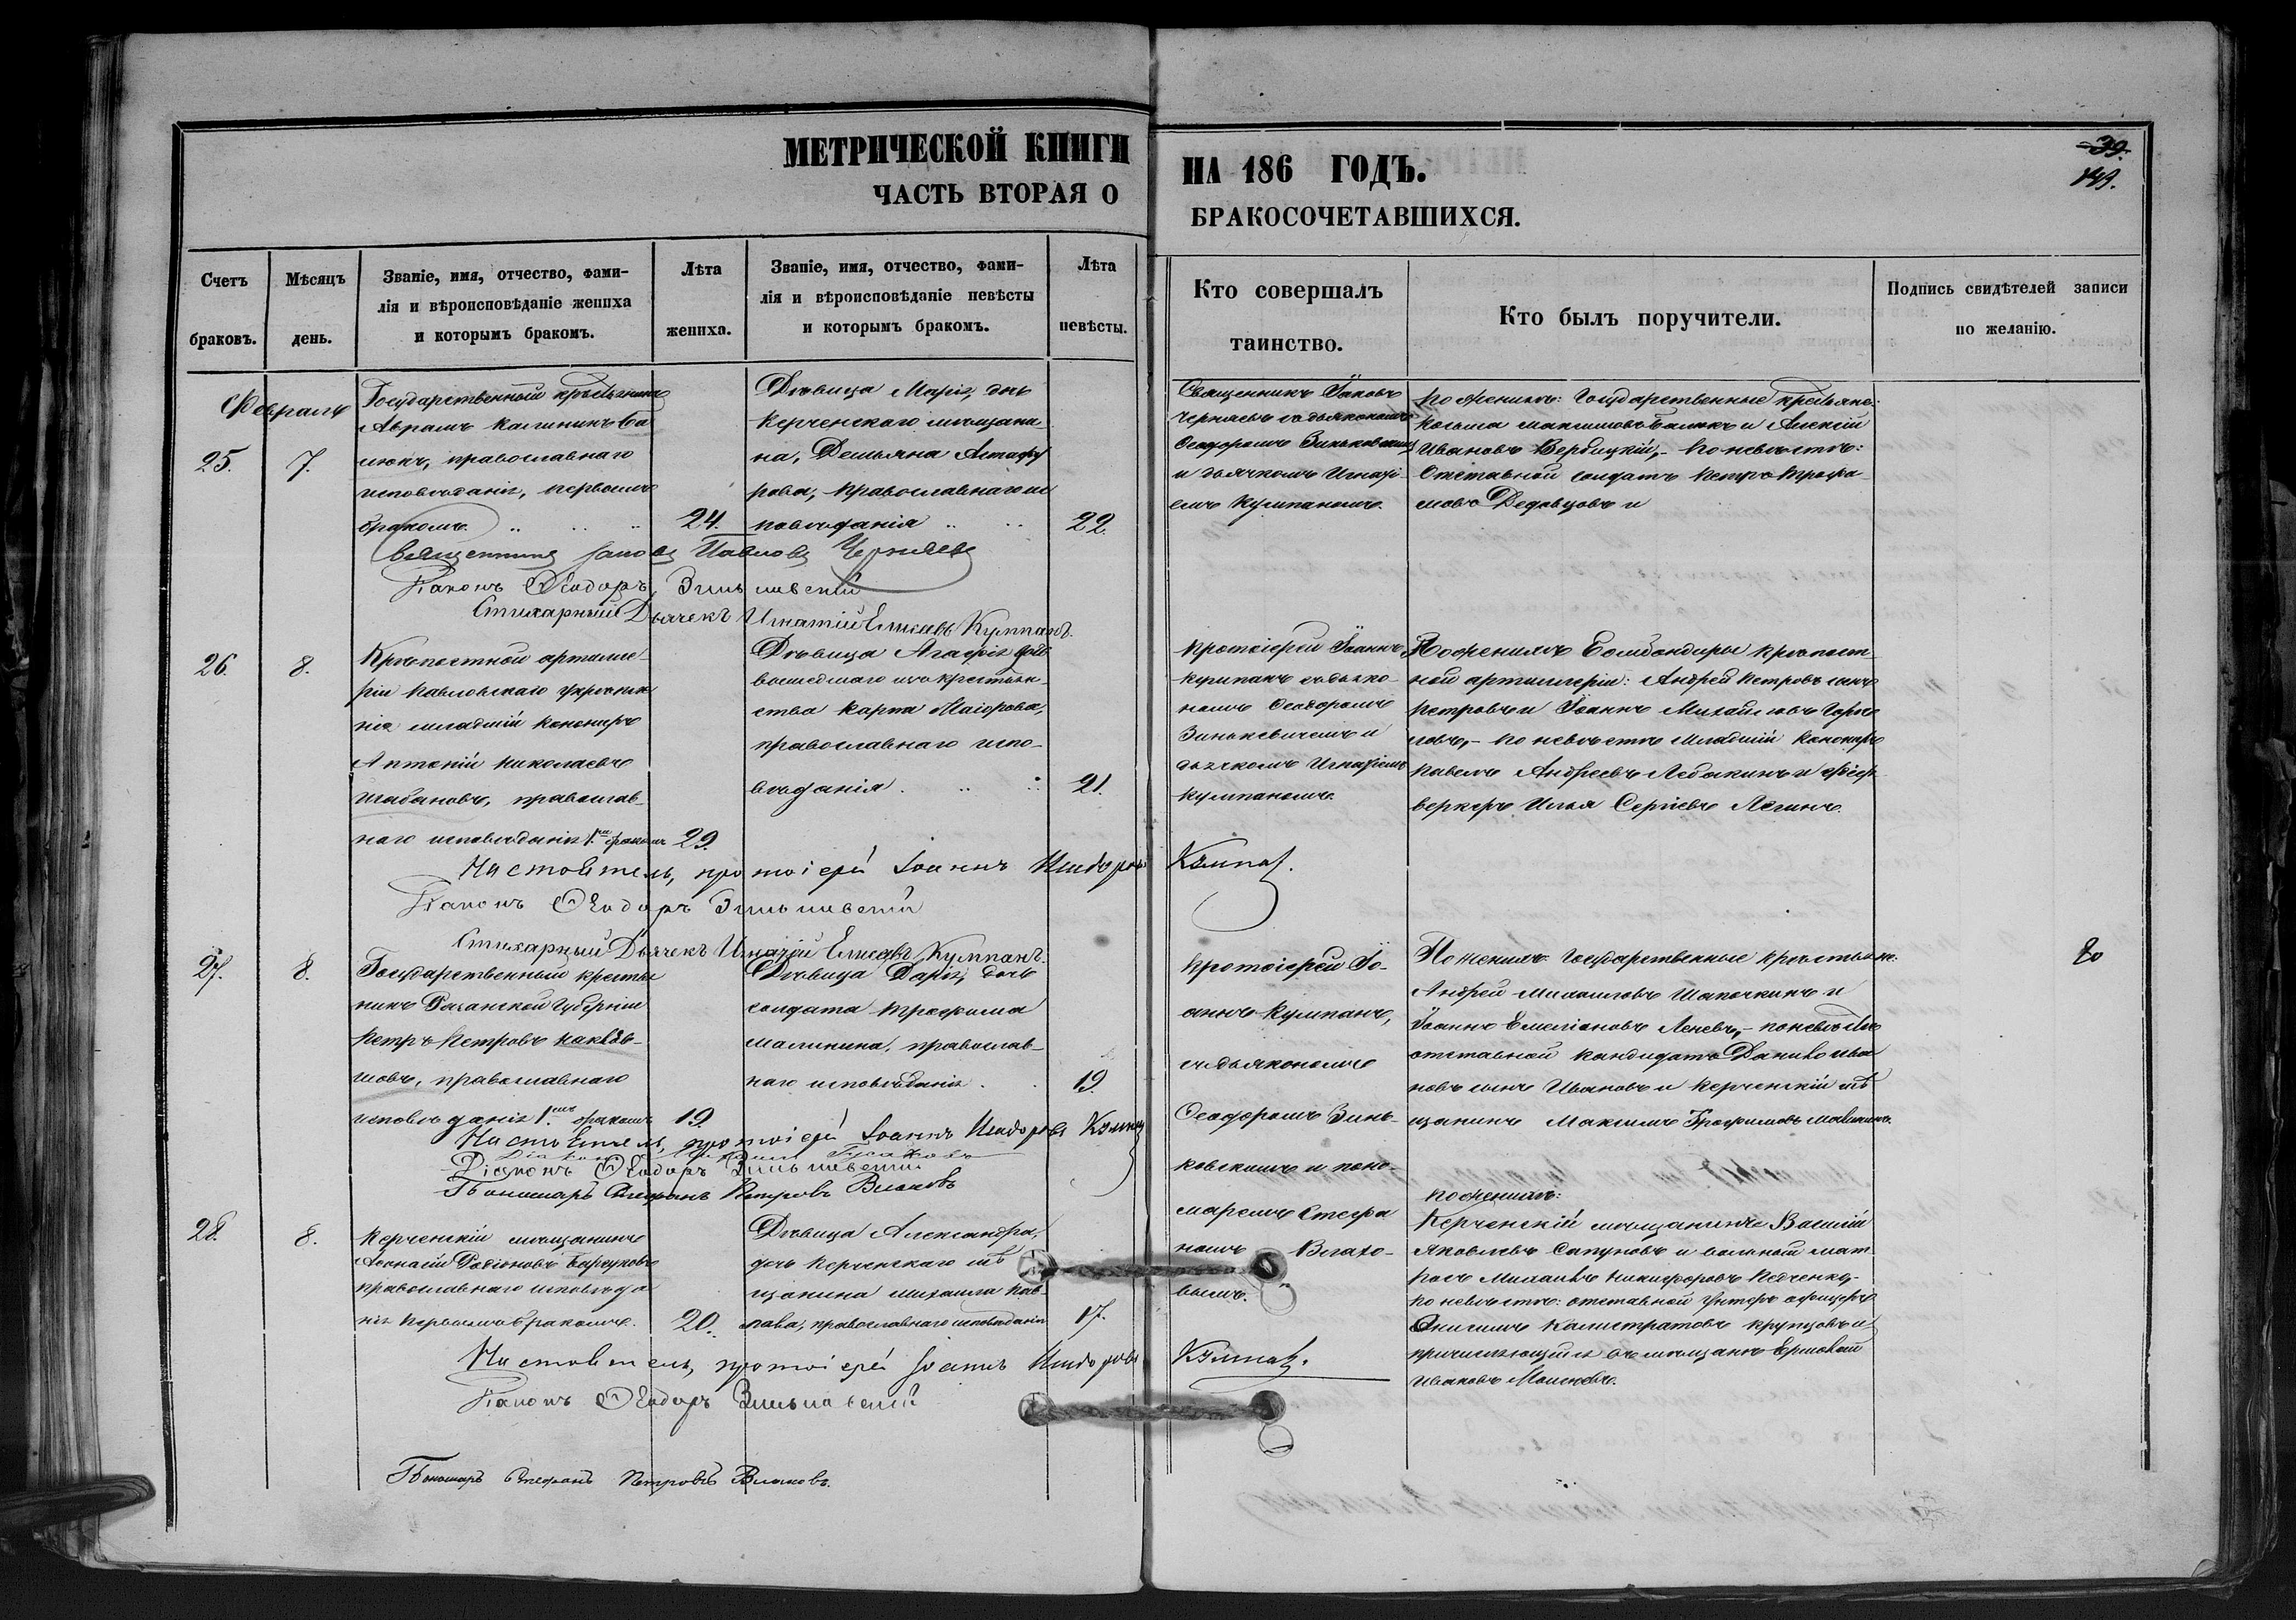 МЕТРИЧЕСКОЙ КНИГИ НА 186 ГОДЪ.
ЧАСТЬ ВТОРАЯ О БРАКОСОЧЕТАВШИХСЯ.
39.
Счетъ браковъ.
Мѣсяцъ день.
Званіе, имя, отчество, фами-
лія и вѣроисповѣданіе жениха
и которымъ бракомъ.
Лѣта жениха.
Званіе, имя, отчество, фами-
лія и вѣроисповѣданіе невѣсты
и которымъ бракомъ.
Лѣта невѣсты.
Кто совершалъ
таинство.
Кто былъ поручители.
Подпись свидѣтелей записи
по желанію.
Февраль
25.
7.
Государственный крестьянинъ
Аврамъ Калининъ Ба
люкъ, православнаго
исповѣданія, первымъ
бракомъ
24.
Дѣвица Марія, дочь
Керченскаго мѣщани-
на, Демьяна Астафу
рова, православнаго ис
повѣданія
22.
Священникъ Іаковъ
Черняевъ съ дьякономъ
Ѳеодоромъ Зиньковскимъ
и дьячкомъ Игнаті-
емъ Кумпаномъ.
По женихѣ: Государственные крестьяне:
Козьма Максимовъ Балюкъ и Алексій
Ивановъ Вербицкій, – По невѣстѣ:
Отставной солдатъ Петръ Трофи-
мовъ Дедовцовъ и
Священникъ Іаковъ Павловъ Черняевъ
Діаконъ Ѳеодоръ Зиньковскій
Стихарный Дьячекъ Игнатій Елисеевъ Кумпанъ.
26.
8.
Крѣпостной артилле-
ріи Павловскаго укрѣпле
нія младшій канониръ
Антоній Николаевъ
Шабановъ, православ-
наго исповѣданія 1мъ бракомъ
29.
Дѣвица Агафія дочь
вышедшаго изъ крестьян-
ства Карпа Маіорова,
православнаго испо-
вѣданія
21.
Протоіерей Іоаннъ
Кумпанъ съ дьяко-
номъ Ѳеодоромъ
Зинькевичемъ и
дьячкомъ Игнатіемъ
Кумпаномъ.
По женихѣ Бомбандиры крѣпост-
ной артиллеріи: Андрей Петровъ сынъ
Петровъ и Іоаннъ Михайловъ Горе
ловъ, – по невѣстѣ Младшій Канониръ
Павелъ Андреевъ Лебакинъ и фейер-
веркеръ Илья Сергіевъ Легинъ.
Настоятель, протоіерей Іоаннъ Исидоровъ Кумпанъ.
Діаконъ Ѳеодоръ Зиньковскій
Стихарный Дьячекъ Игнатій Елисеевъ Кумпанъ.
27.
8.
Государственный крестья
нинъ Рязанской Губерніи
Петръ Петровъ
православнаго
исповѣданія 1мъ бракомъ
19.
Дѣвица Дарія, дочь
солдата Трофима
Малинина, православ-
наго исповѣданія
19.
Протоіерей Іо-
аннъ Кумпанъ,
съ дьякономъ
Ѳеодоромъ Зинь-
ковскимъ и поно-
маремъ Стефа
номъ
По женихѣ: Государственные крестьяне:
Андрей Михаиловъ Шапочкинъ и
Іоаннъ Емеліановъ Леневъ, – по невѣстѣ
отставной кандидатъ Данило Ива
новъ сынъ Ивановъ и Керченскій мѣ
щанинъ Максимъ Трофимовъ Малининъ.
80
Настоятель, протоіерей Іоаннъ Исидоровъ Кумпанъ
Діаконъ Ѳеодоръ Зиньковскій
Пономарь Стефанъ Петровъ
28.
8.
Керченскій мѣщанинъ
Аѳанасій Родіоновъ
православнаго исповѣда
нія первымъ бракомъ.
20.
Дѣвица Александра,
дочь Керченскаго мѣ
щанина Михаила Пав-
лова, православнаго исповѣданія
17.
По женихѣ:
Керченскій мѣщанинъ Василій
Яковлевъ Сапуновъ и вольный мат-
росъ Михаилъ Никифоровъ Педченко, –
по невѣстѣ: отставной Унтеръ офицеръ
Онисимъ Калистратовъ Крупцовъ и
причисляющійся въ мѣщане Ермолай
Ивановъ Моисеевъ.
Настоятель, протоіерей Іоаннъ Исидоровъ Кумпанъ.
Діаконъ Ѳеодоръ Зиньковскій
Пономарь Стефанъ Петровъ